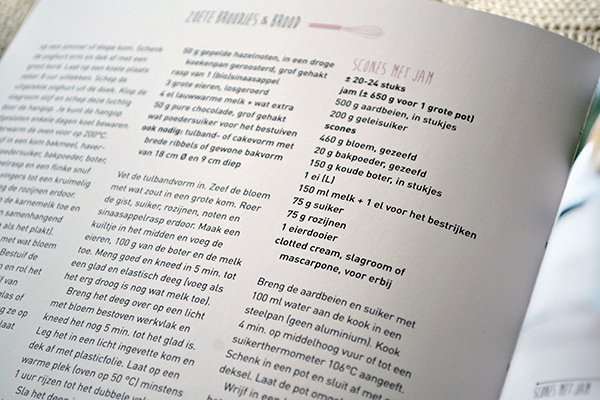 ZOETE BROODJES & BROOD
op een zeef of diepe kom. Schenk
de yoghurt erin en dek af met een
groot bord. Laat op een koele plaats
zeker 8 uur uitlekken. Schep de
uitgelekte yoghurt uit de doek. Klop de
slagroom stijf en schep deze luchtig
door de hangop. Je kunt de hangop
enkele dagen koel bewaren.
warm de oven voor op 200°C.
een kom bakmeel, haver-
poedersuiker, bakpoeder, boter,
rasp en een flinke snuf
vingers tot een kruimelig
de rozijnen erdoor.
de karnemelk toe en
samenhangend
als het plakt).
met wat bloem
Bestuif de
en rol het
van
glas of
leg ze op
plaat
50 g gepelde hazelnoten, in een droge
koekenpan geroosterd, grof gehakt
rasp van 1 (bio)sinaasappel
3 grote eieren, losgeroerd
4 el lauwwarme melk + wat extra
50 g pure chocolade, grof gehakt
wat poedersuiker voor het bestuiven
ook nodig: tulband- of cakevorm met
brede ribbels of gewone bakvorm
van 18 cm Ø en 9 cm diep
Vet de tulbandvorm in. Zeef de bloem
met wat zout in een grote kom. Roer
de gist, suiker, rozijnen, noten en
sinaasappelrasp erdoor. Maak een
kuiltje in het midden en voeg de
eieren, 100 g van de boter en de melk
toe. Meng goed en kneed in 5 min. tot
een glad en elastisch deeg (voeg als
het erg droog is nog wat melk toe).
Breng het deeg over op een licht
met bloem bestoven werkvlak en
kneed het nog 5 min. tot het glad is.
Leg het in een licht ingevette kom en
dek af met plasticfolie. Laat op een
warme plek (oven op 50 °C) minstens
1 uur rijzen tot het dubbele
Sla het deeg
SCONES MET JAM
± 20-24 stuks
jam (± 650 g voor 1 grote pot)
500 g aardbeien, in stukjes
200 g geleisuiker
scones
460 g bloem, gezeefd
20 g bakpoeder, gezeefd
150 g koude boter, in stukjes
1 ei (L)
150 ml melk + 1 el voor het bestrijken
75 g suiker
75 g rozijnen
1 eierdooier
clotted cream, slagroom of
mascarpone, voor erbij
Breng de aardbeien en suiker met
100 ml water aan de kook in een
steelpan (geen aluminium). Kook
4 min. op middelhoog vuur of tot een
suikerthermometer 106°C aangeeft.
Schenk in een pot en sluit af met een
deksel. Laat de pot
Wrijf in een
SCONES MET JAM